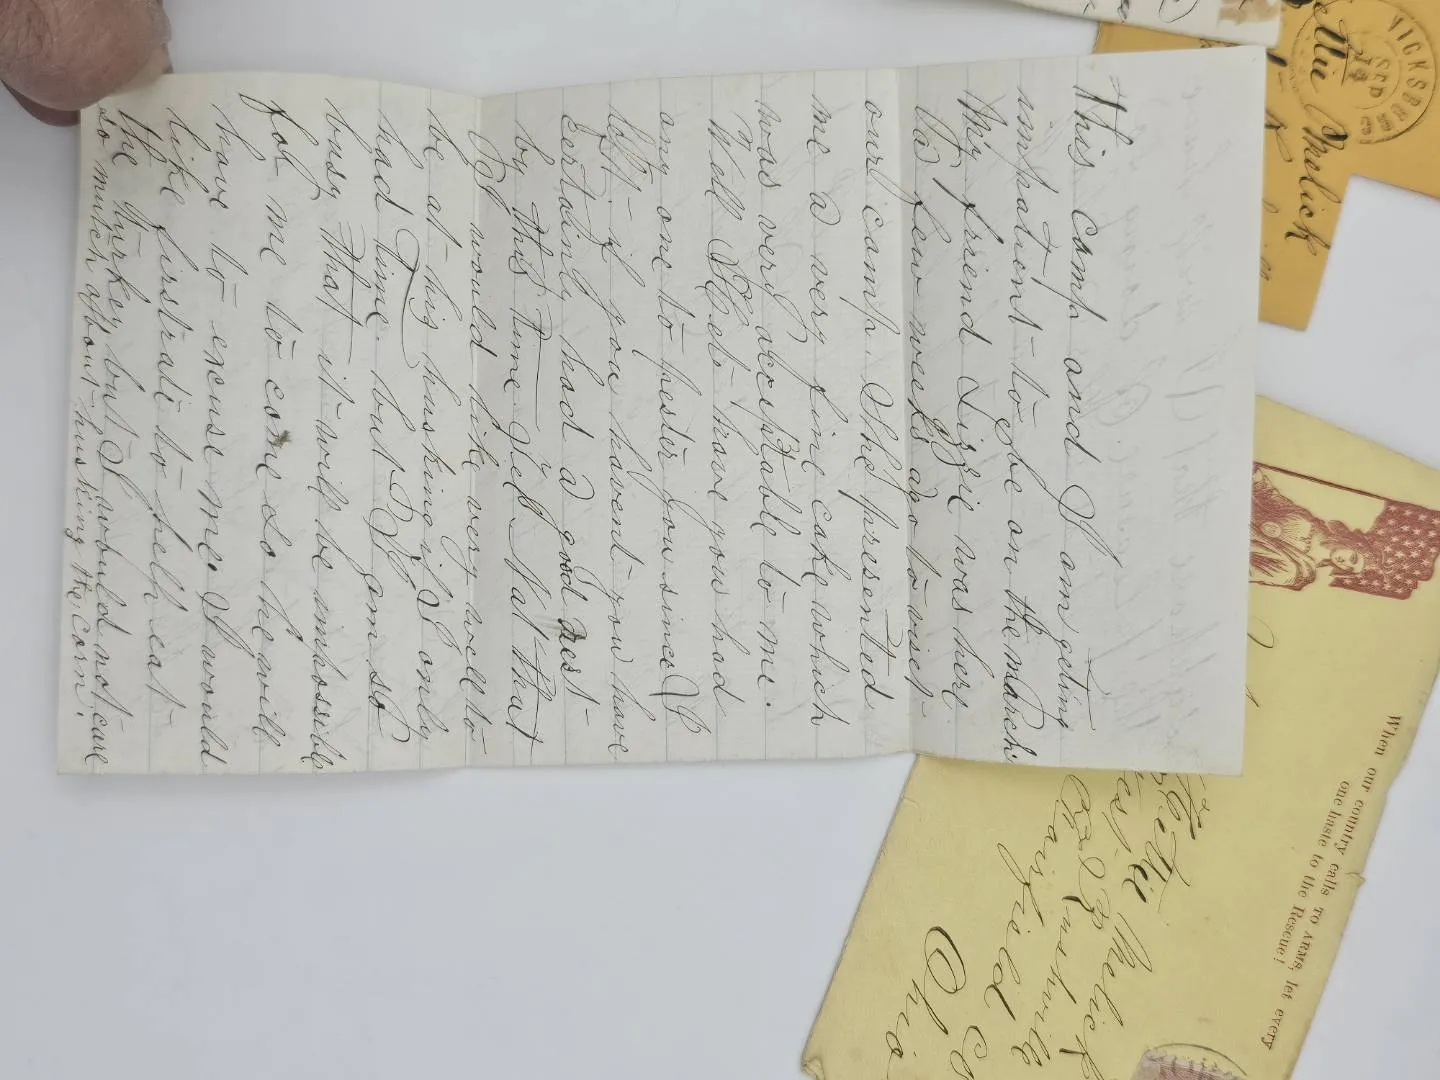 This camp and I am geting
impatient to be on the march.
My friend Lizzie was here
a few weeks ago to visit
our camp. She presented
me a very fine cake which
was very acceptable to me.
Well Het have you had
any one to pester you since I
left - if you havent you have
certainly had a good rest
by this time Tell Nat that
I would like very well to
be at his husking if I only
had time. but I am so
busy that it will be impossible
for me to come So he will
have to excuse me. I would
like firstrate to help eat
the turkey but I would not care
so much about husking the corn.
VICKSBURG
SEP
Melick
When our country calls TO ARMS, let every
one haste to the Rescue!
Hettie Melick
Rushville
Fairfield Co
Ohio